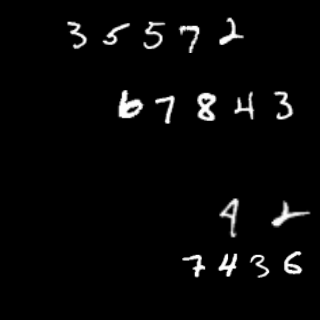 35572
67843
92
7436